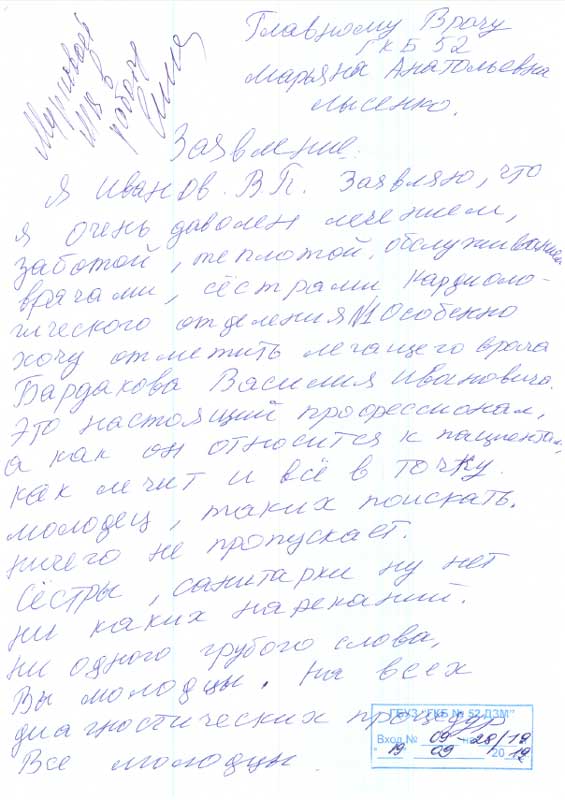 Главному Врачу
ГКБ 52
Марьяна Анатольевна
Лысенко.
в
работу
Заявление.
Я Иванов. В П. Заявляю, что
я очень даволен лечением,
заботой, теплотой, обслуживанием
врачами, сёстрами Кардиоло-
гического отделения №1 Особенно
хочу отметить лечащего врача
Бардакова Василия Ивановича.
Это настоящий профессионал,
а как он относится к пациентам,
как лечит и всё в точку.
молодец, таких поискать.
ничего не пропускает.
Сёстры, санитарки ну нет
ни каких нареканий.
ни одного грубого слова,
Вы молодцы. На всех
диагностических процедур
Все молодцы.
ГБУЗ "ГКБ № 52 ДЗМ"
Вход.№ 09-28/19
"19" 09 2019